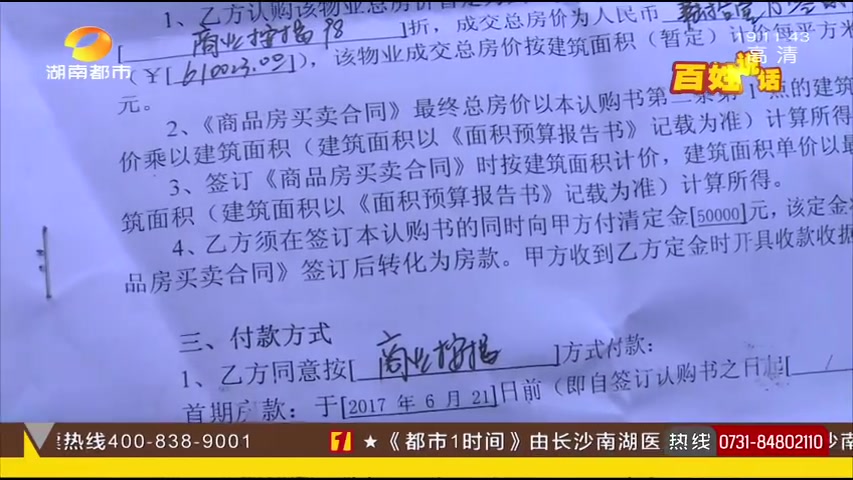 1、乙方认购该物业总房价暂定为
[商业按揭98]折，成交总房价为人民币
（￥[610023.00]），该物业成交总房价按建筑面积（暂定）计价每平方米
元。
2、《商品房买卖合同》最终总房价以本认购书第二条第1点的建筑
价乘以建筑面积（建筑面积以《面积预算报告书》记载为准）计算所得
3、签订《商品房买卖合同》时按建筑面积计价，建筑面积单价以最
筑面积（建筑面积以《面积预算报告书》记载为准）计算所得。
4、乙方须在签订本认购书的同时向甲方付清定金[50000]元，该定金
品房买卖合同》签订后转化为房款。甲方收到乙方定金时开具收款收据
三、付款方式
1、乙方同意按[商业按揭]方式付款：
首期房款：于[2017 年 6 月 21]日前（即自签订认购书之日起[ /
湖南都市
19:11:43
高清
百姓说话
热线400-838-9001
★《都市1时间》由长沙南湖医
热线
0731-84802110
沙南